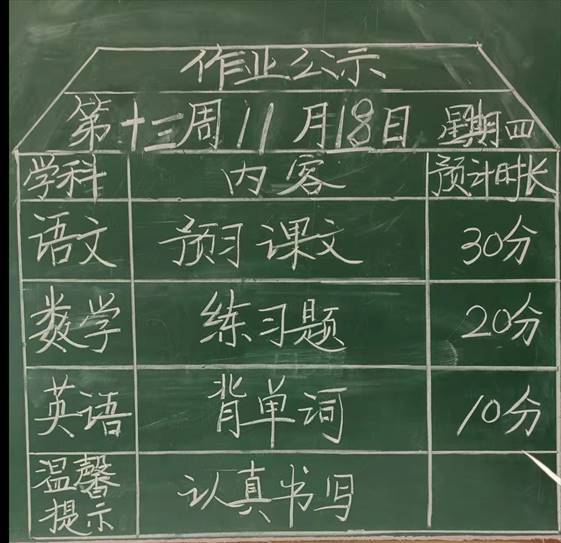 作业公示
第十三周11月18日 星期四
学科 内容 预计时长
语文 预习课文 30分
数学 练习题 20分
英语 背单词 10分
温馨提示 认真书写